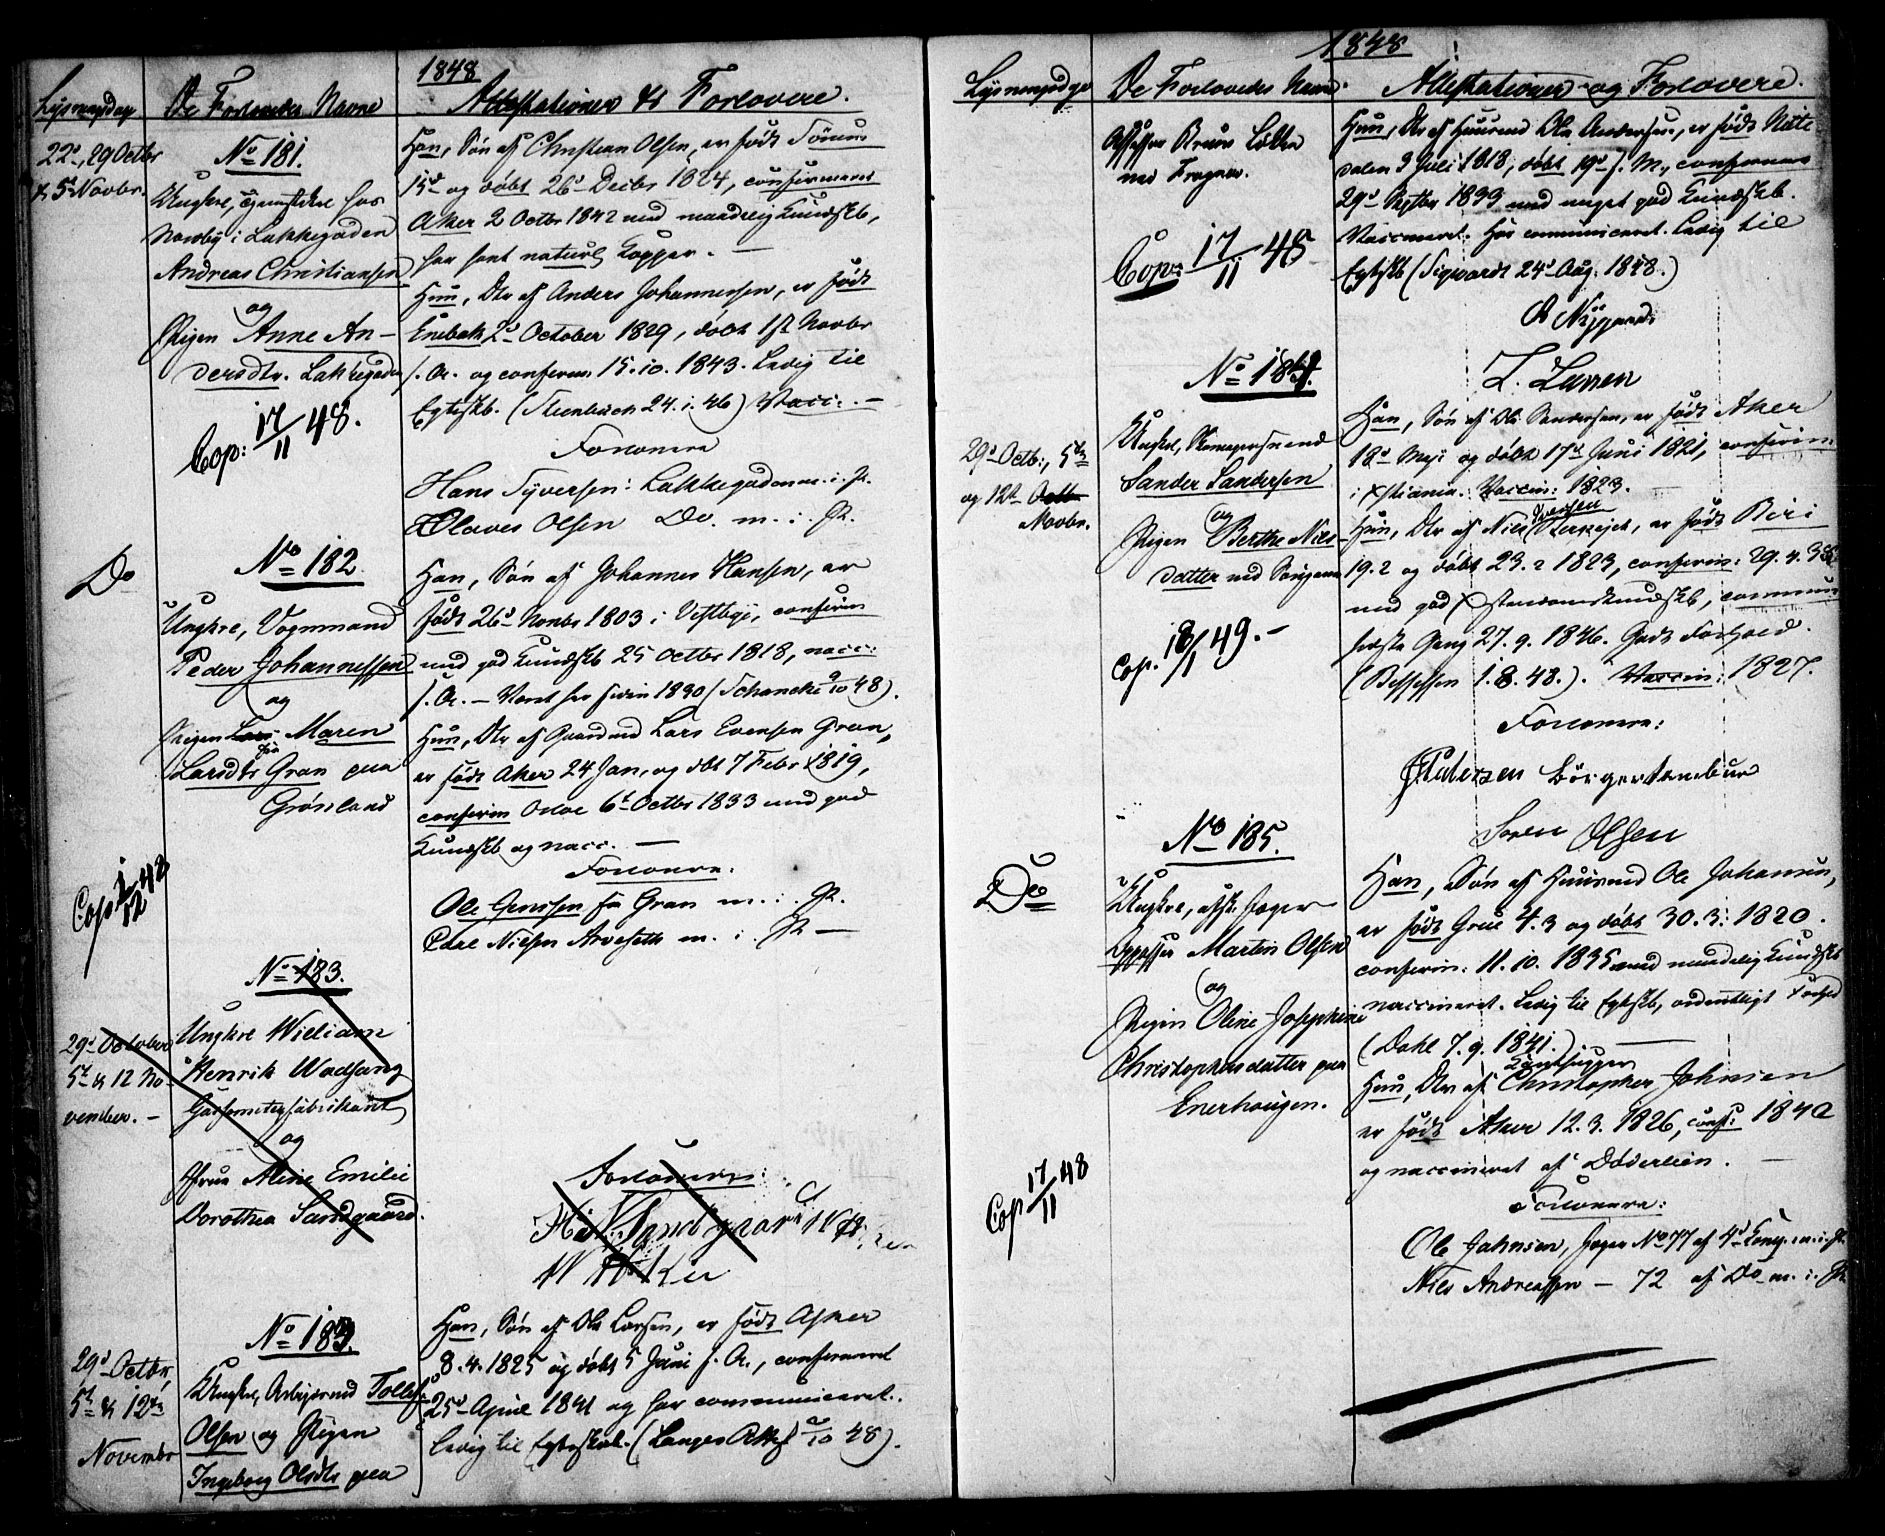 1848
Lysningsdag De Forlovedes Navne Attestationer & Forlovere.
22d, 29 Octbr
& 5t Novbr.
No 181.
Ungkrl,
i Lakkegaden
Andreas Christiansen
og
Pigen Anne An-
dersdtr. Lakkegaden
Cop: 17/11 48.
Han, Søn af Christian Olsen, er født Sørum
15d og døbt 26d Decbr 1824, confirmeret
Aker 2 Octbr 1842 med maadelig Kundskb,
har havt naturl Kopper. —
Hun, Dtr af Anders Johannessen, er født
Enebak 2d October 1829, døbt 1st Novbr
s. A. og confirm. 15.10.1843. Ledig til
Egteskb. (Steenbuch 24.1.46) Vacc. —
Forlovere
Hans Syversen: Lakkegaden m. i. P.
Olaves Olsen Do. m. i. P.
Do
No 182.
Ungkrl, Vognmand
Peder Johannessen
og
Pigen Maren
Larsdtr Gran paa
Grønland
Cop 1/12 48
Han, Søn af Johannes Hansen, er
født 26d Novbr 1803 i Vestbye, confirm
med god Kundskb 25 Octbr 1818, vacc:
s. A. — Været her siden 1830 (Schancke 9/10 48).
Hun, Dtr af Gaardmd Lars Evensen Gran,
er født Aker 24 Jan, og dbt 7 Febr 1819,
confirm Oslo 6t Octbr 1833 med god
Kundskb og vacc. —
Forlovere:
Ole Jenssen fra Gran m. i. P.
Carl Nielsen Arveseth m. i. P. —
No 183.
29d October
5t & 12 No-
vember. —
Ungkrl William
Henrik Wadsang
Gassometerfabrikant
og
Frue Aline Emilie
Dorothea Sandgaard.
Forlovere:
Sandgaard
No 183.
29d Octbr,
5t & 12te
Novembr
Ungkrl, Arbeismd Tollef
Olsen og Pigen
Ingeborg Olsdtr paa
Han, Søn af Ole Larsen, er født Asker
8.4.1825 og døbt 5 Juni s. A., confirmeret
25d April 1841 og har communiceret.
Ledig til Egteskab. (Langes Attest 2/10 48).
1848
Lysningsdge De Forlovedes Navne Attestationer og Forlovere.
Assessor Bruns Løkke
ved Frogner.
Cop: 17/11 48
Hun, Dtr af Huusmd Ole Andersen, er født Nitte
dalen 3 Juli 1818, døbt 19d s. M., confirmeret
29d Septbr 1833 med meget god Kundskb.
Vaccineret. Har communiceret. Ledig til
Egtskb (Sigwardt 24d Aug. 1848.)
O Nygaard
L. Larsen
No 184.
29d Octb:, 5te
og 12te Octbr
Novbr.
Ungkrl, Skomagersvend
Sander Sandersen
og
Pigen Berthe Niels-
datter ved Sorgenn
Cop. 18/1 49. —
Han, Søn af Ole Sandersen, er født Aker
18d Maji og døbt 17d Juni 1821, confirm:
i Xstiania. Vaccin: 1823. —
Hun, Dtr af Niels Iversen er født Biri
19.2 og døbt 23.2 1823, confirm: 29.4.38
med god Xstendomskundskb, commun
første Gang 27.9.1846. Godt Forhold.
(Bessessen 1.8.48.). Vaccin: 1827.
Forlovere:
Petersen Børgertambur
Søren Olsen
No 185.
Do
Ungkrl, afsk. Jæger
Oppasser Martin Olsen
og
Pigen Oline Josephine
Christophersdatter paa
Enerhaugen.
Cop 17/11 48
Han, Søn af Huusmd Ole Johansen,
er født Grue 4.3 og døbt 30.3.1820.
confirm: 11.10.1835 med maadelig Kundskb
vaccineret. Ledig til Egtskb, ordentligt Forhold
(Dahl 7.9.1841.) —
Hun, Dtr af Christopher Johnsen
er født Aker 12.3.1826, conf: 1840
og vaccineret af Døderlein. —
Forlovere:
Ole Johnsen, Jæger No 77 af 4d Comp. m. i. P.
Niels Andreassen — 72 af Do m. i. P.